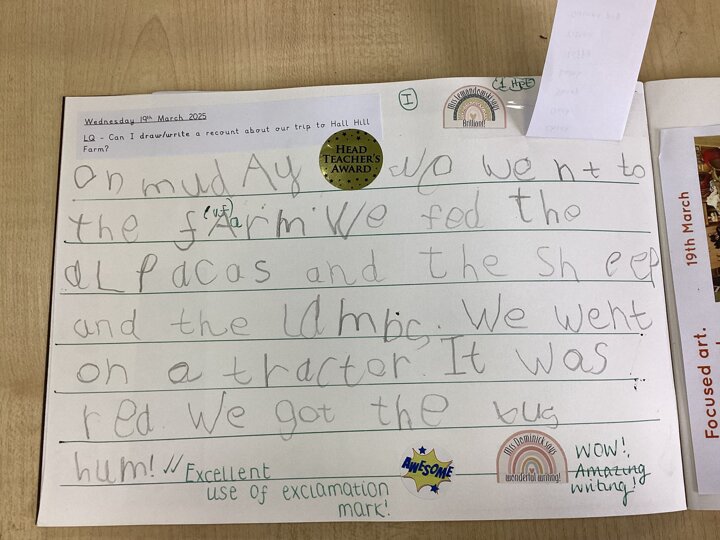 Wednesday 19th March 2025
LQ - Can I draw/write a recount about our trip to Hall Hill
Farm?
I
Mrs Lewandowski says
Brilliant!
HEAD
TEACHER'S
AWARD
On mudAy we went to
the fArm. We fed the
a
aLpacas and the sheep
and the lambs. We went
on a tractor. It was
red. We got the bus
hum! Excellent
use of exclamation
mark!
AWESOME
Mrs Dominick says
wonderful writing!
WOW!
Amazing
writing!
19th March
Focused art.